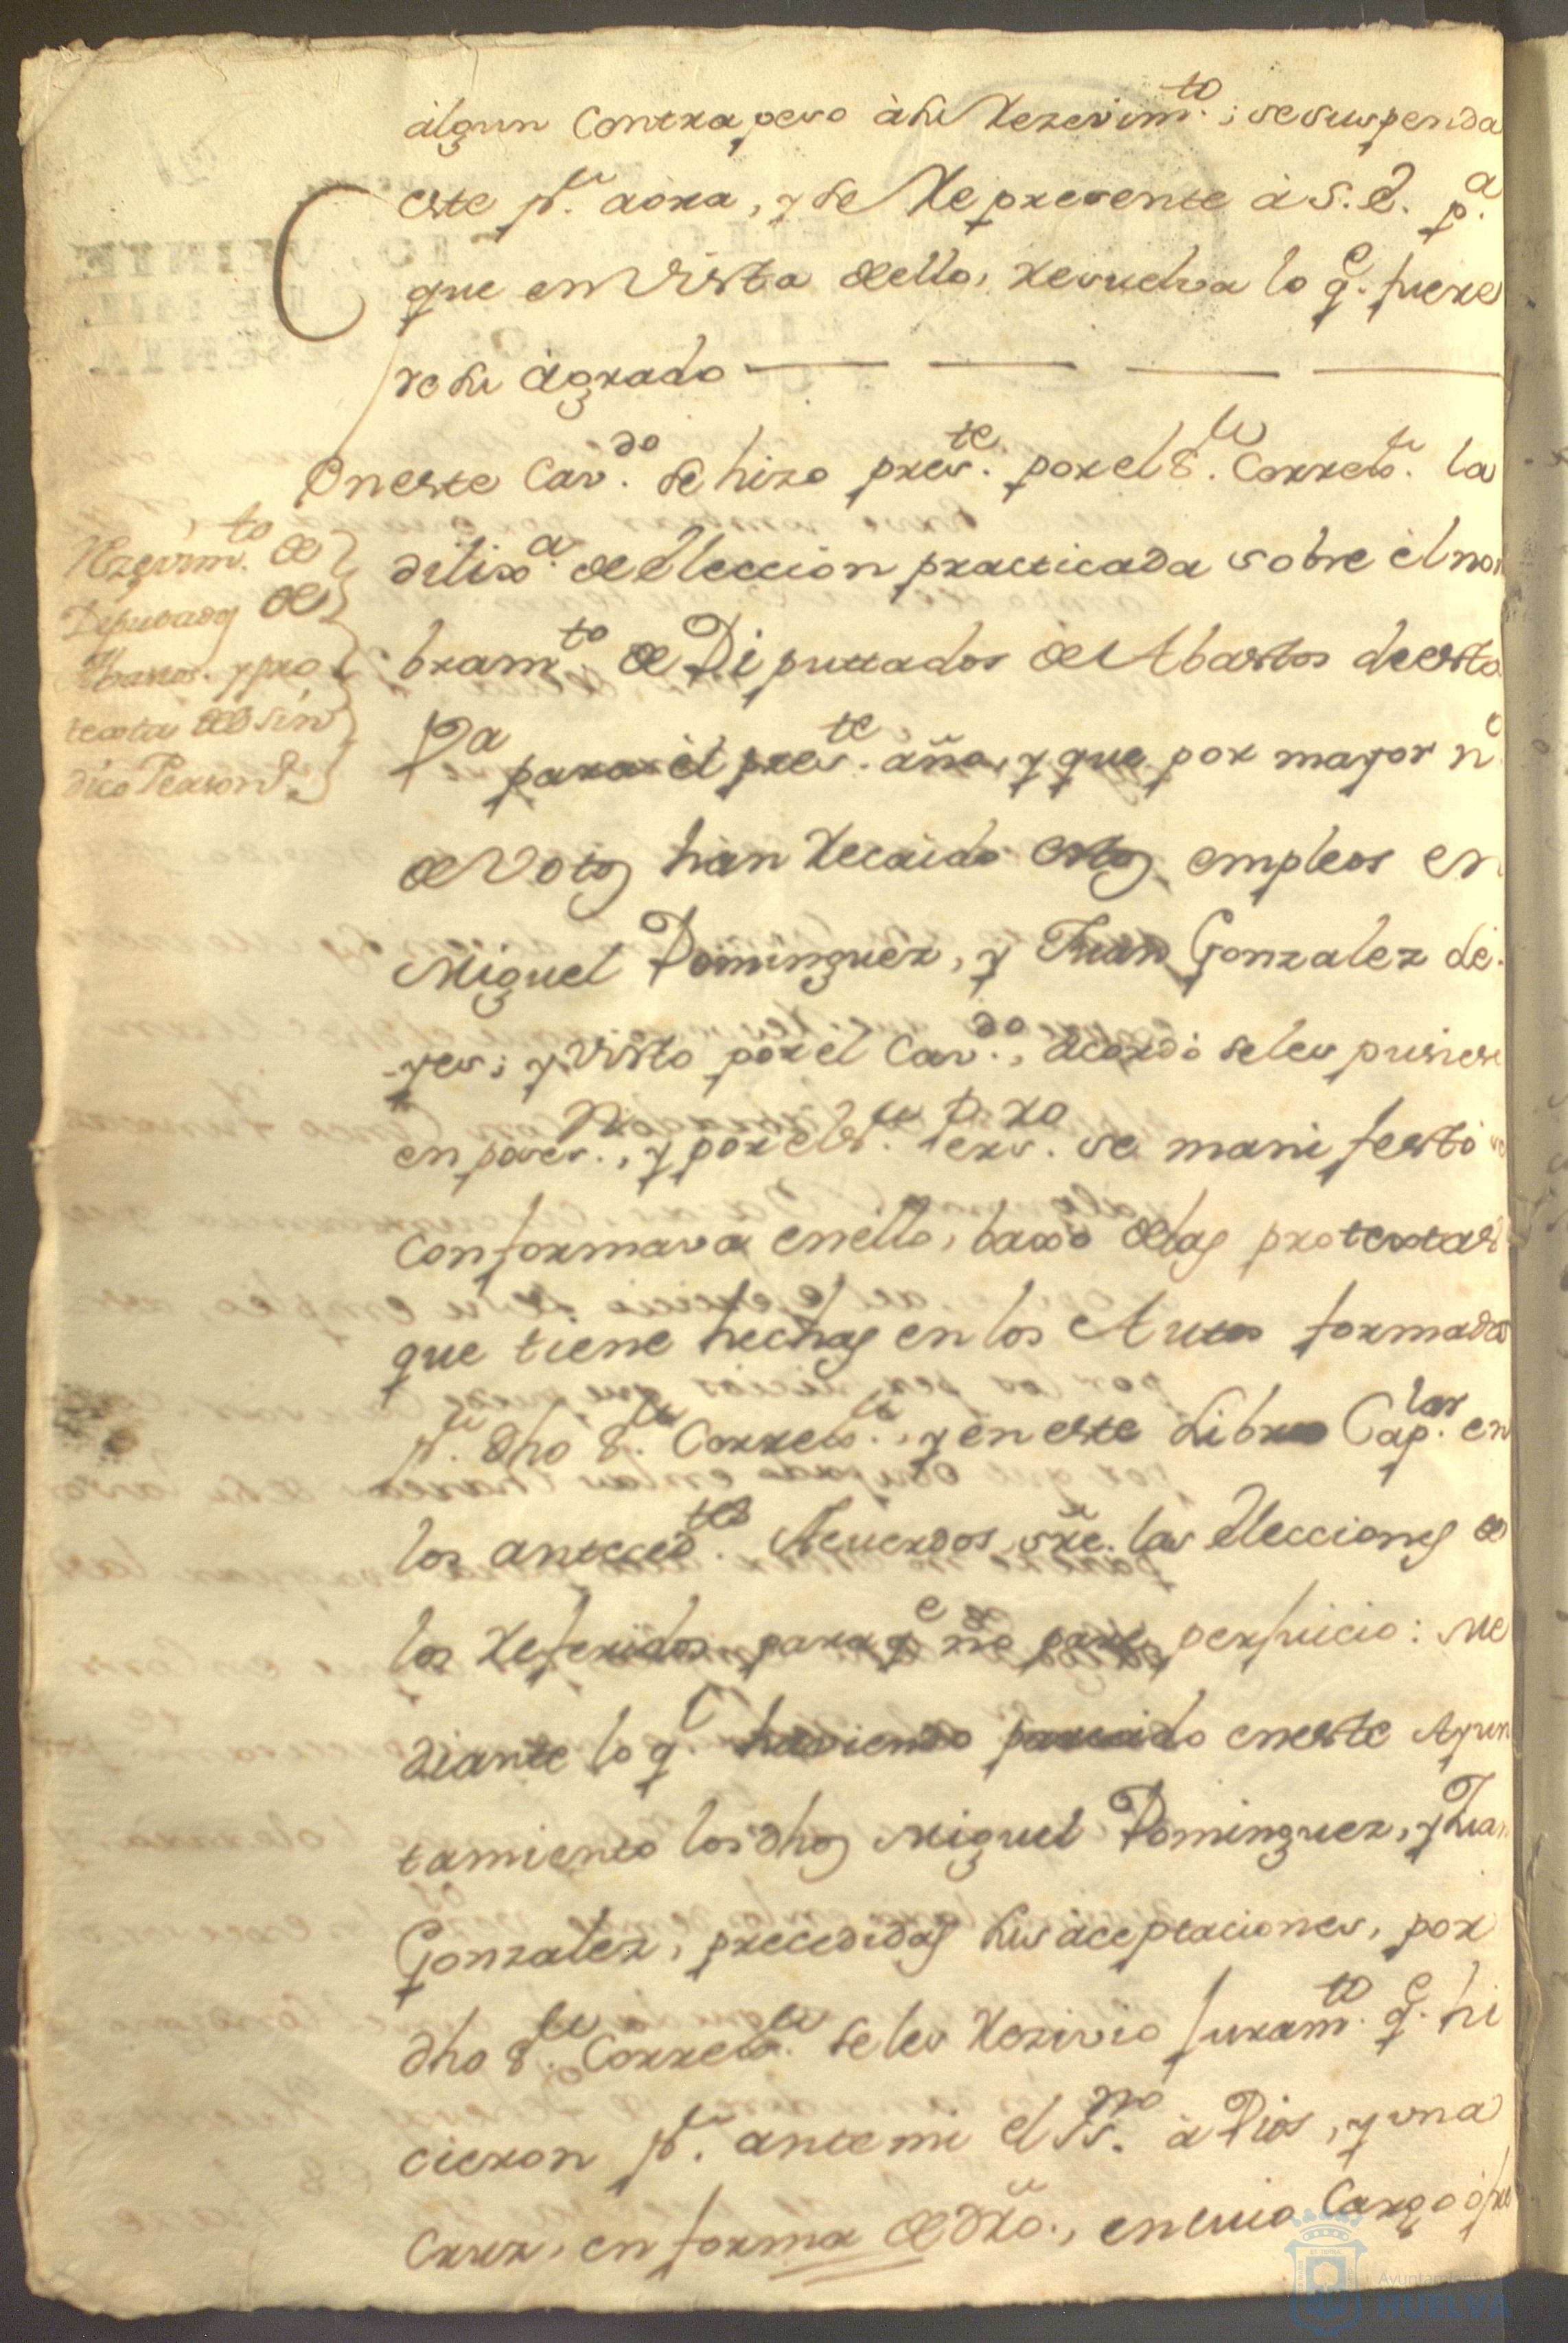 algun Contrapeso à su Rezevim.to; se suspenda
este p.r aora, y se Represente à S. E. p.a
que en Vista de ello, resuelva lo q.e fuere
de su agrado
En este Cav.do se hizo pres.te por el S.r Correx.r la
dilix.a de Eleccion practicada sobre el nom
bram.to de Diputtados de Abastos de esta
V.a para el pres.te año, y que por mayor n.o
de Votos han Recaido estos empleos en
Miguel Dominguez, y Juan Gonzalez de
yes; y Visto por el Cav.do, acordò se les pusiese
en poses.n, y por el S.r Pers.ro se manifestò
conformava en ello, baxo de las protextas
que tiene hechas en los Autos formados
p.r dho S.r Correx.r, y en este Libro Cap.lar en
los anteced.tes Acuerdos, sre. las Elecciones de
los Referidos para q.e no pare perjuicio: Me
diante lo q.e haviendo parecido en este Ayun
tamiento los dhos Miguel Dominguez, y Juan
Gonzalez, precedidas sus aceptaciones, por
dho S.r Correx.r se les Rezivio juram.to q.e hi
cieron p.r ante mi el Ss.no à Dios, y una
Cruz, en forma de dro., en cuio Cargo ofre
Rezevim.to de
Deputados de
Abastos. y pro
texta del Sin
dico Person.o
Ayuntamiento
HUELVA